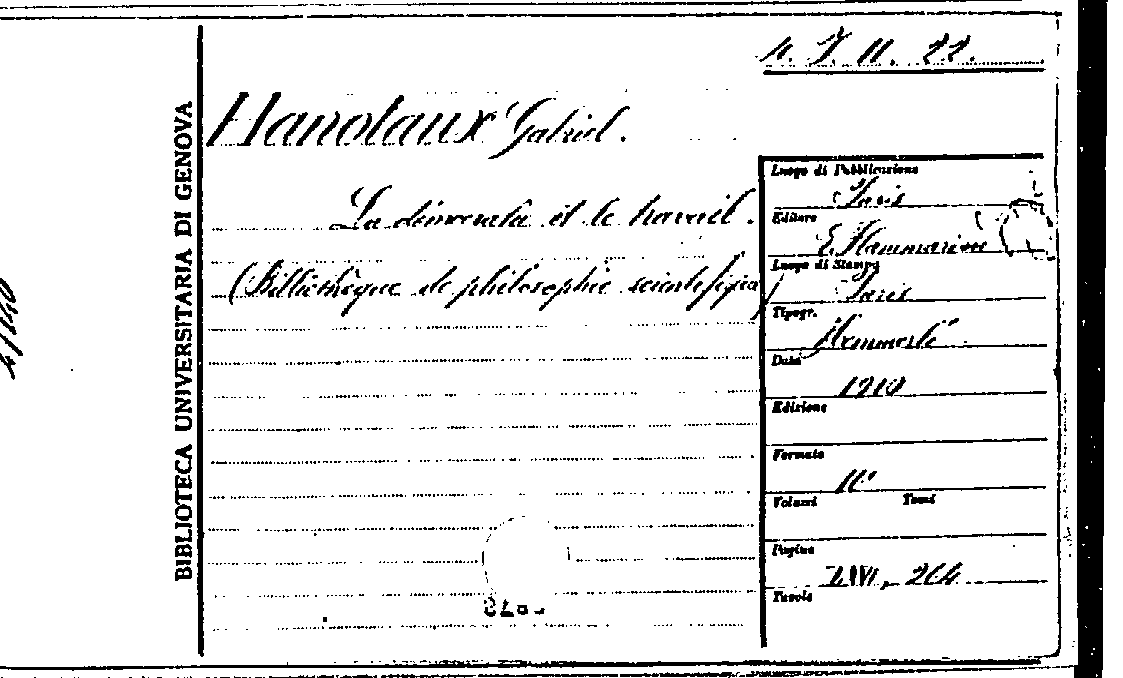 4. I. 11. 22.
Hanotaux Gabriel.
La démocratie et le travail.
(Bibliothèque de philosophie scientifique)
BIBLIOTECA UNIVERSITARIA DI GENOVA
Luogo di Pubblicazione
Paris
Editore
E. Flammarion
Luogo di Stampa
Paris
Tipogr.
Hemmerlé
Data
1910
Edizione
Formato
16°
Volumi Tomi
Pagine
264
Tavole